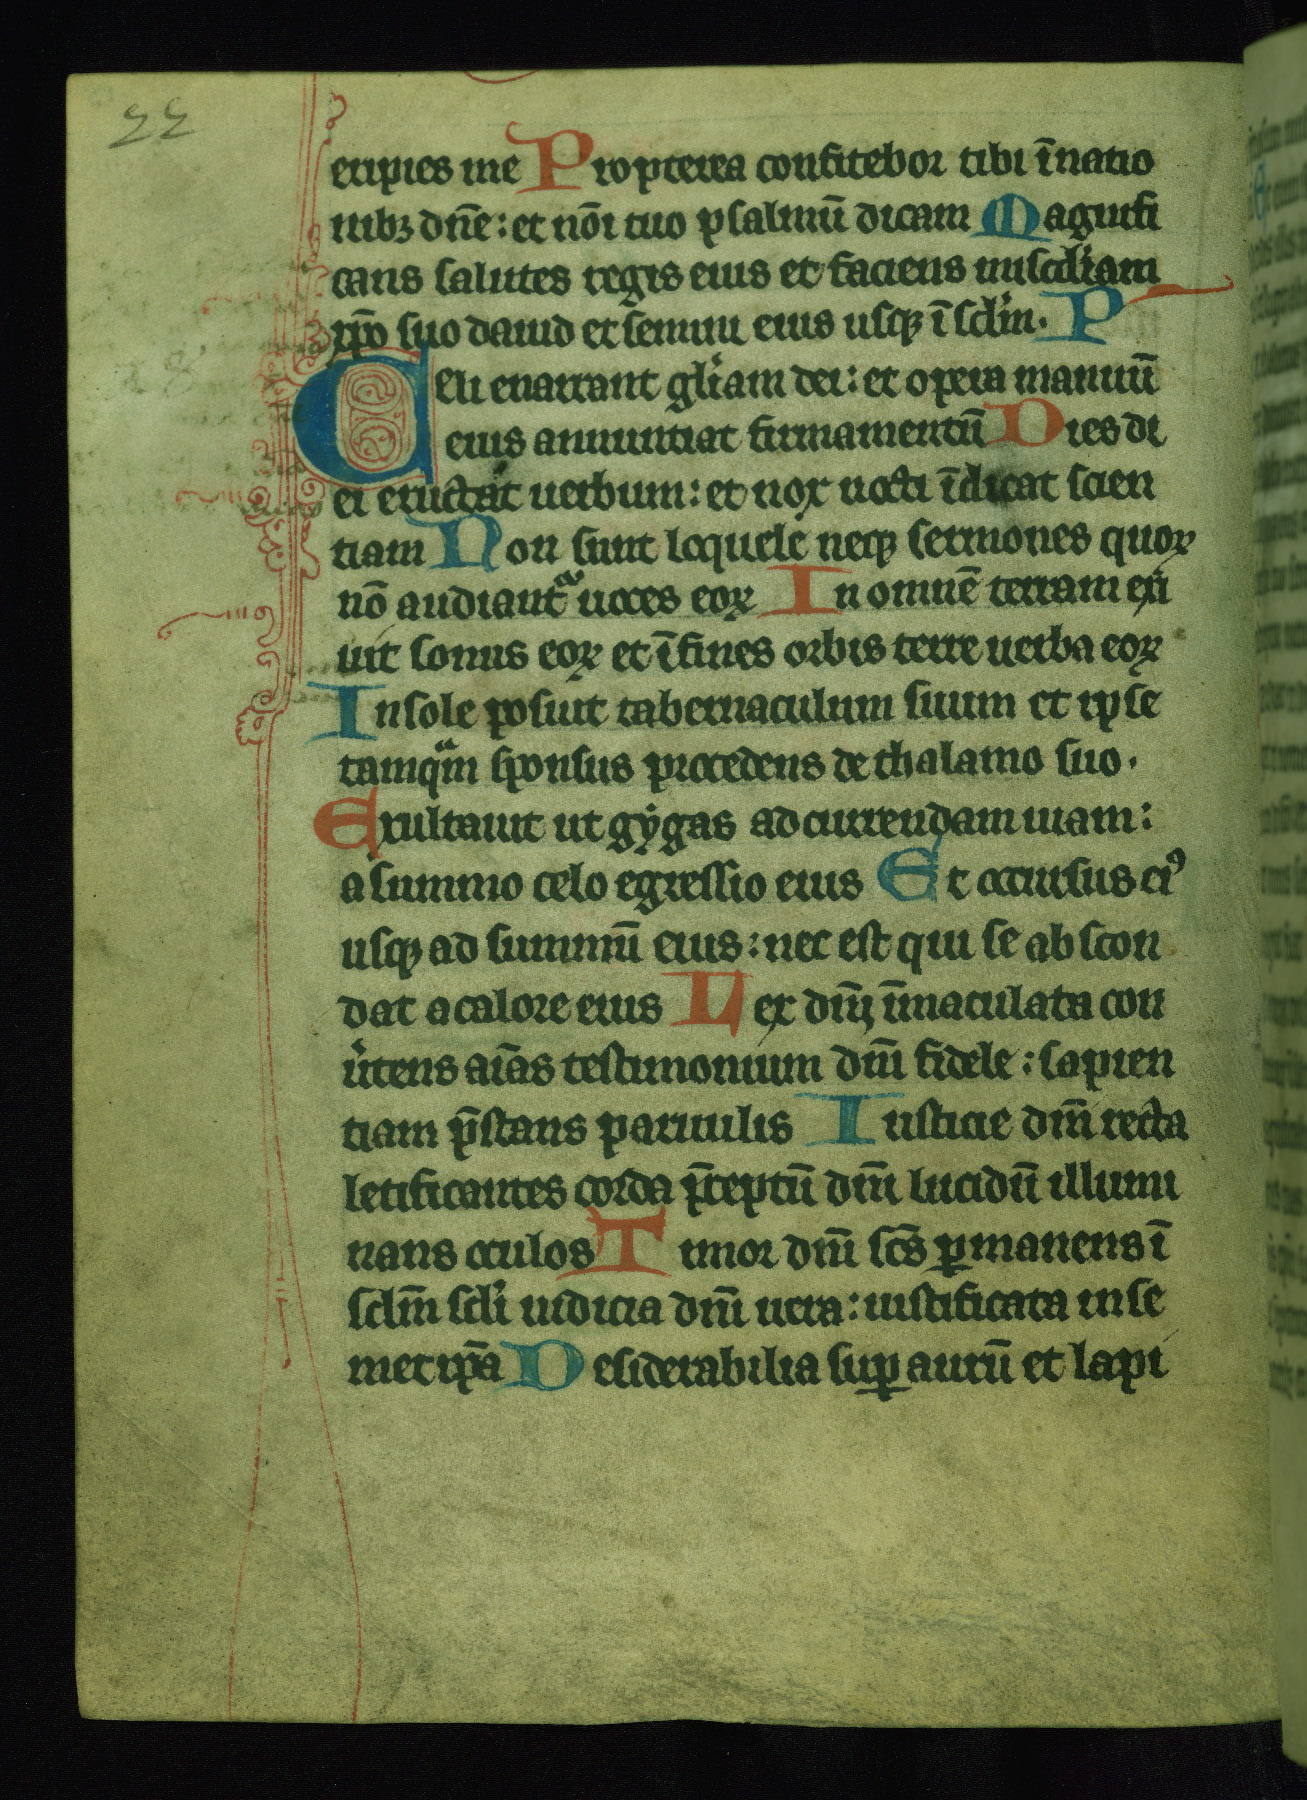 22
eripies me Propterea confitebor tibi ī natio
nibꝫ dn̄e: et nōi tuo psalmū dicam Magnifi
cans salutes regis eius et faciens miscd'iam
xp̄o suo dauid et semini eius usqꝫ ī scl'm. P
Celi enarrant gl'iam dei: et opera manuū
eius annuntiat firmamentū Dies di
ei eructat uerbum: et nox nocti īdicat scien
tiam Non sunt loquele neqꝫ sermones quoꝝ
nō audiantᷓ uoces eoꝝ In omnē terram exi
uit sonus eoꝝ et ī fines orbis terre uerba eoꝝ
In sole posuit tabernaculum suum et ipse
tamqᷓm sponsus procedens de thalamo suo.
Exultauit ut gẏgas ad currendam uiam:
a summo celo egressio eius Et occursus eiꝰ
usqꝫ ad summū eius: nec est qui se abscon
dat a calore eius Lex dn̄i īmaculata con
u'tens aīas testimonium dn̄i fidele: sapien
tiam p̄stans paruulis Iusticie dn̄i recta
letificantes corda p̄ceptū dn̄i lucidū illumi
nans oculos Timor dn̄i sc̄s ꝑmanens ī
sclm̄ scl'i iudicia dn̄i uera: iustificata in se
met ip̄a Desiderabilia suꝑ aurū et lapi